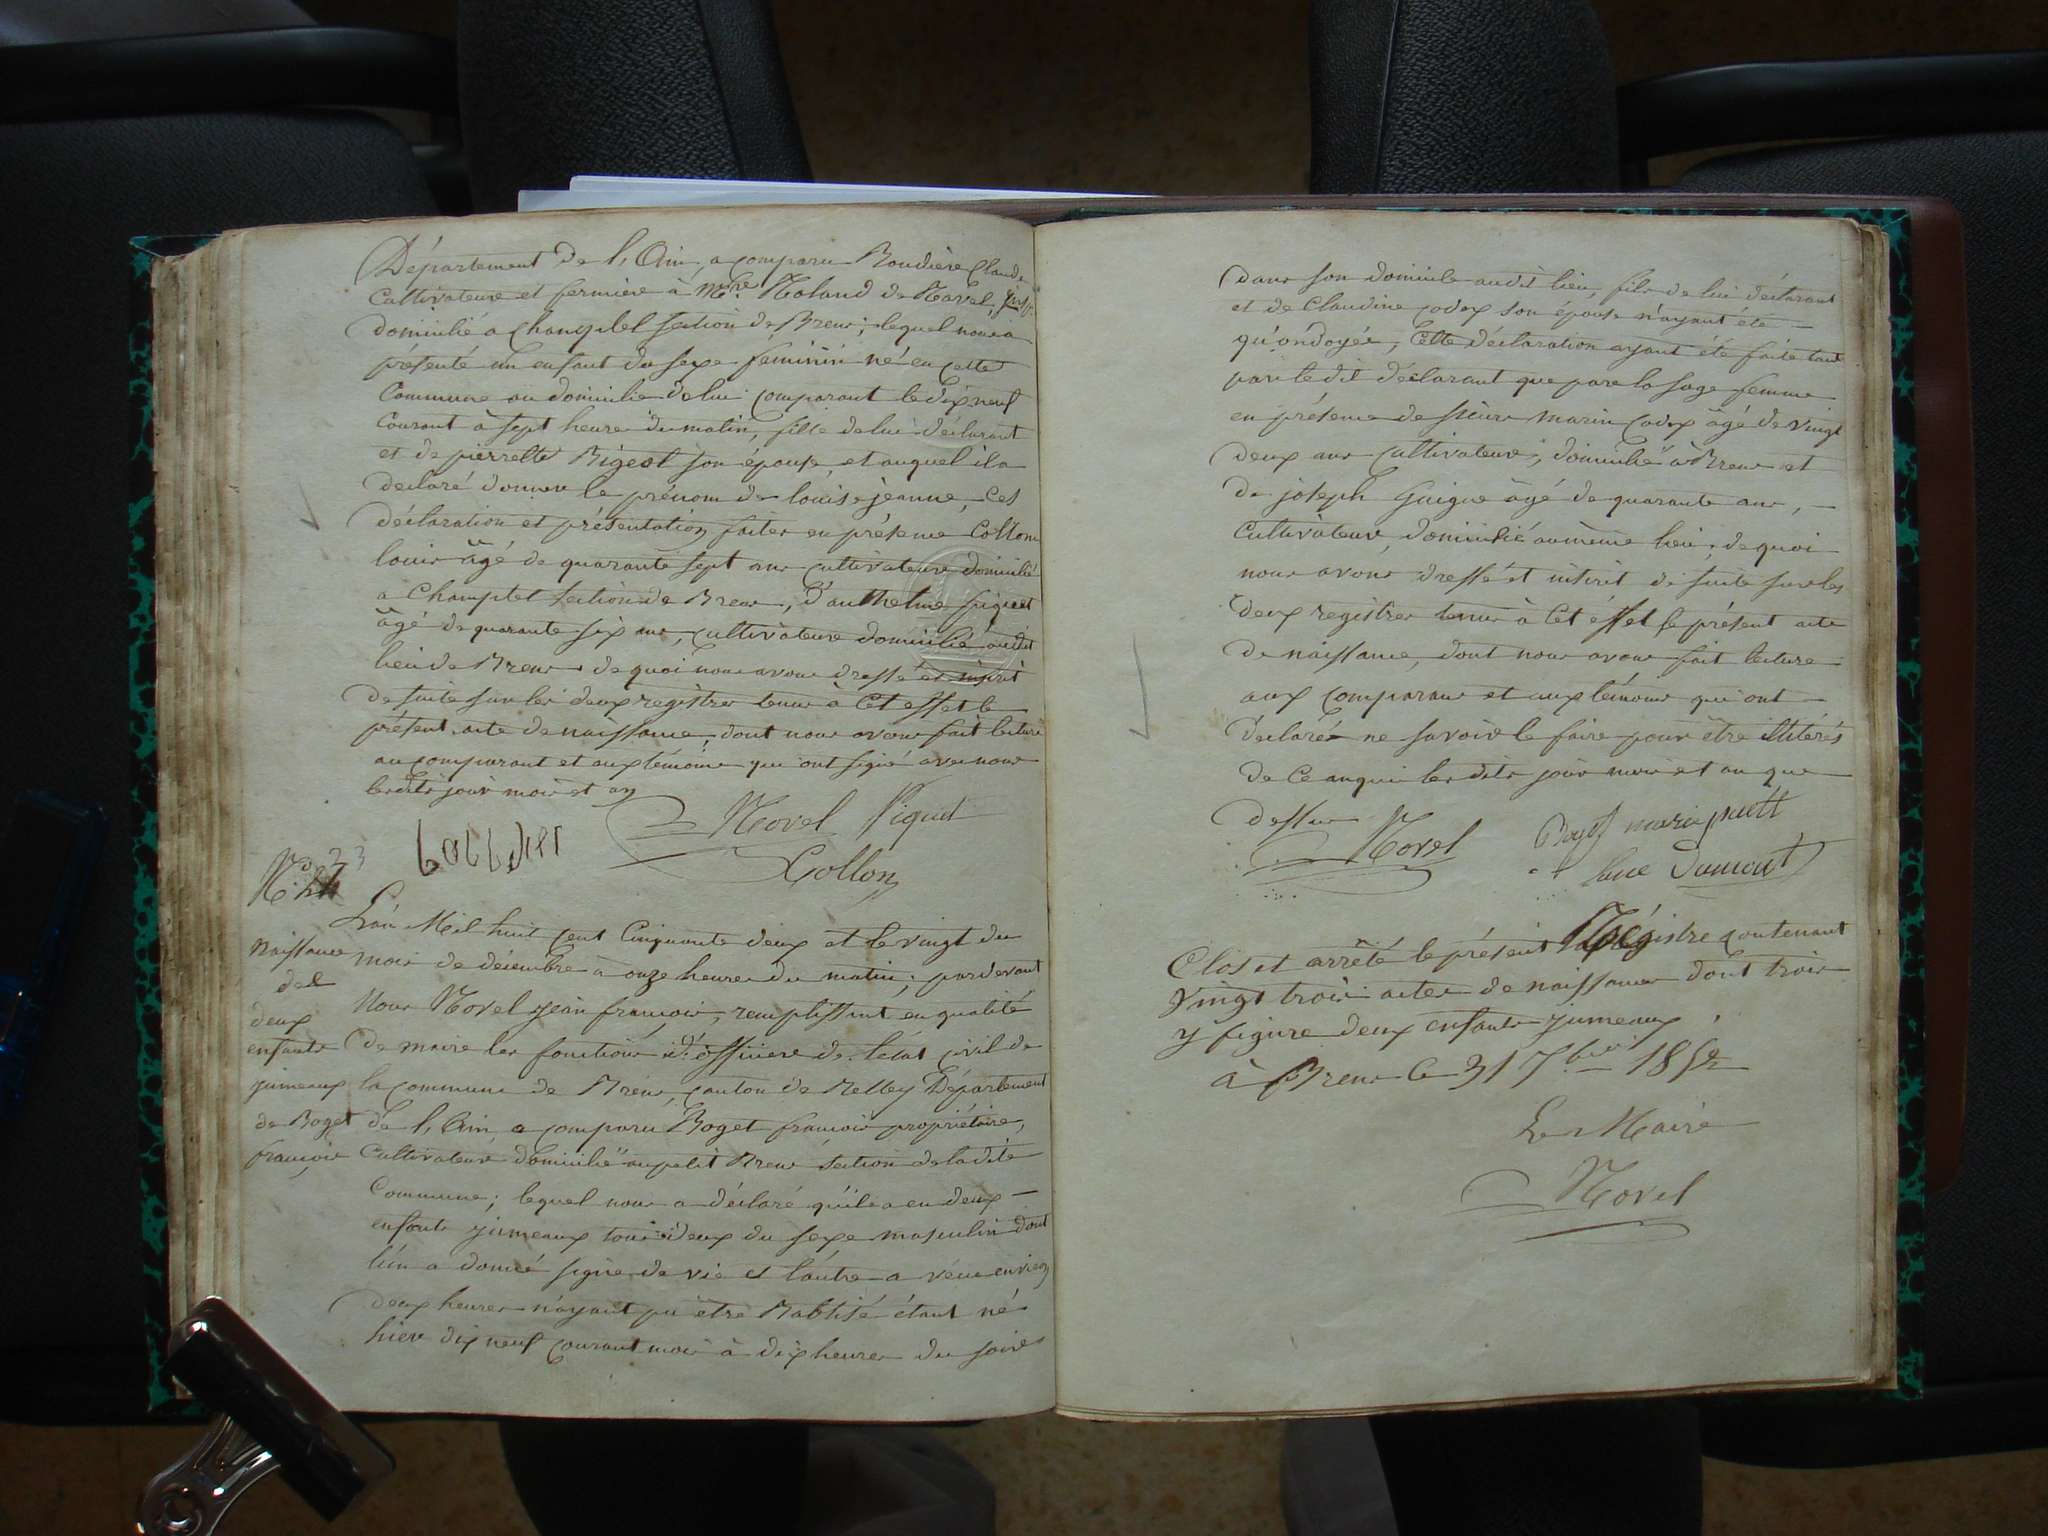 Département de l'Ain, a comparu Boudière Claude
Cultivateur et fermier à Mre Roland de Ravel,
domicilié a Champtel section de Brens; lequel nous a
présenté un enfant du sexe féminin né en cette
Commune au domicilie de lui comparant le dix neuf
Courant à sept heure du matin, fille de lui déclarant
et de pierrette Bigeol son épouse, et auquel il a
declaré donner le prénom de louise jeanne, Ces
déclaration et présentation faites en présence Collon
louis âgé de quarante sept ans cultivateur domicilié
a Champtel section de Brens, d'anthelme piguet
âgé de quarante six ans, cultivateur domicilié audit
lieu de Brens de quoi nous avons dressé et inscrit
de suite sur les deux registres tenus à Cet effet le
présent acte de naissance, dont nous avons fait lecture
au comparant et aux témoins qui ont signé avec nous
lesdits jour mois et an
Novel Piguet
Collon
No 23
L'an Mil huit cent Cinquante deux et le vingt du
Naissance mois de décembre à onze heures du matin; pardevant
de Nous Novel jean françois, remplissant en qualité
deux
enfants de maire les fonctions d'officier de l'état civil de
jumeaux la commune de Brens, canton de Belley Département
de Roget de l'Ain, a comparu Roget françois propriétaire,
françois Cultivateur domicilié au petit Brens section de la dite
Commune; lequel nous a déclaré qu'il a eu deux
enfants jumeaux tous deux du sexe masculin dont
l'un a donné signe de vie et l'autre a vécu environ
deux heures n'ayant pu être Babtisé étant né
hier dix neuf courant mois à dix heures du soir
dans son domicile audit lieu, fils de lui déclarant
et de Claudine codex son épouse n'ayant été
qu'ondoyés, Cette déclaration ayant été faite tant
par le dit déclarant que par la sage femme
en présence de sieur marin codex âgé de vingt
deux ans cultivateur, domicilié à Brens et
de joseph Guigue âgé de quarante ans,
Cultivateur, domicilié au même lieu, de quoi
nous avons dressé et inscrit de suite sur les
deux registres tenus à Cet effet le présent acte
de naissance, dont nous avons fait lecture
aux comparans et aux témoins qui ont
déclarés ne savoir le faire pour être illitérés
de Ce auquis les dits jour mois et an que
dessus
Novel
Clos et arrêté le présent Régistre contenant
vingt trois actes de naissances dont trois
y figure deux enfants jumeaux
à Brens le 31 1852
Le Maire
Novel